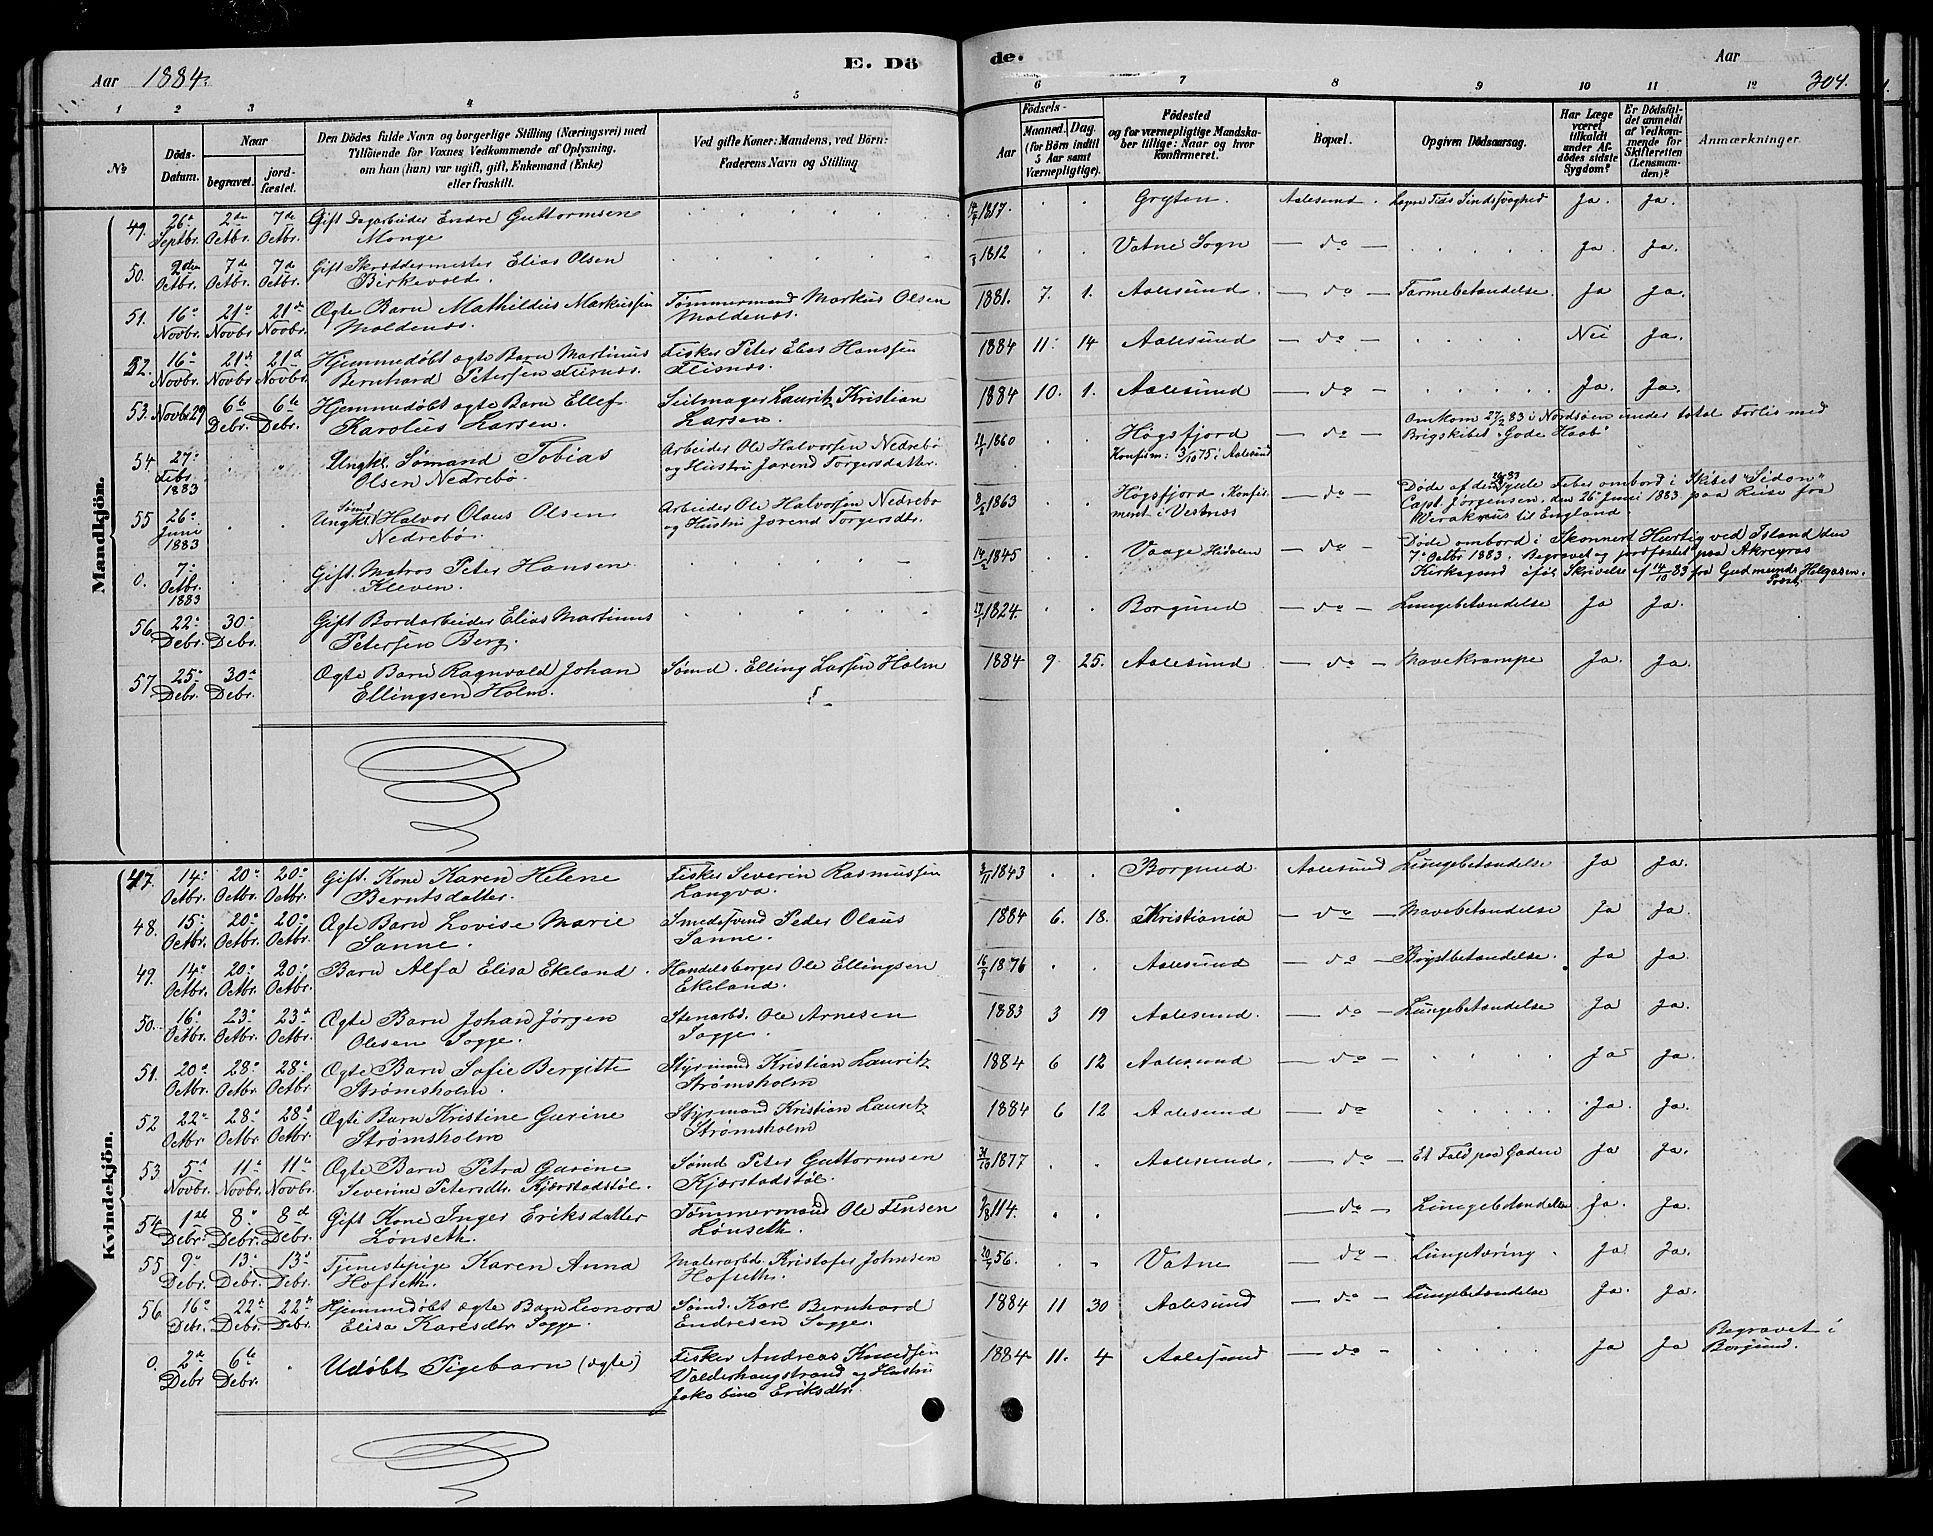 Aar 1884.
E. Döde.
Aar
304.
1 2 3 4 5 6 7 8 9 10 11 12
No
Döds-Datum.
Naar
begravet.
jordfæstet.
Den Dödes fulde Navn og borgerlige Stilling (Næringsvei) med
Tilföiende for Voxnes Vedkommende af Oplysning,
om han (hun) var ugift, gift, Enkemand (Enke)
eller fraskilt.
Ved gifte Koner: Mandens, ved Börn:
Faderens Navn og Stilling
Födsels-
Aar
Maaned. Dag.
(for Börn indtil
5 Aar samt
Værnepligtige).
Födested
og for værnepligtige Mandskaber tillige: Naar og hvor
konfirmeret.
Bopæl.
Opgiven Dödsaarsag.
Har Læge været tilkaldt under Afdödes sidste Sygdom?
Er Dödsfaldet anmeldt af Vedkommende for Skifteretten (Lensmanden)?
Anmærkninger.
Mandkjön.
49. 26de Septbr. 2den Octbr. 7de Octbr. Gift Dagarbeider Endre Guttormsen Monge 1817. Gryten. Aalesund. Sindssvaghed Ja. Ja.
50. 2den Octbr. 7de Octbr. 7de Octbr. Gift Skræddermester Elias Olsen Birkevold. 1812 Vatne Sogn — do — Ja. Ja.
51. 16de Novbr. 21de Novbr. 21de Novbr. Ægte Barn Mathildius Markussen Moldenæs. Tømmermand Markus Olsen Moldenæs. 1881. 7. 1. Aalesund. — do — Tarmebetændelse. Ja Ja.
52. 16de Novbr. 21de Novbr. 21de Novbr. Hjemmedøbt ægte Barn Martinus Bernhard Petersen Flisnæs. Fisker Peter Elias Hanssen Flisnæs. 1884 11. 14 Aalesund — do — Nei Ja.
53. Novbr 29 6te Debr. 6te Debr. Hjemmedøbt ægte Barn Ellef Karolius Larsen. Seilmager Lauritz Kristian Larsen. 1884 10. 1. Aalesund — do — Ja. Ja.
54. 27de Febr. 1883 Ungkl. Sømand Tobias Olsen Nedrebø. Arbeider Ole Halvorsen Nedrebø og Hustru Jorend Torgersdatter. 1860 Høgsfjord Konfirm: 3/10 75 i Aalesund — do — Omkom 27/2 83 i Nordsøen under total Forlis med Brigskibet "Gode Haab"
55 26de Juni 1883 Ungkl. Sømd Halvor Olaus Olsen Nedrebø. Arbeider Ole Halvorsen Nedrebø og Hustru Jorend Torgersdtr. 8/2 1863 Høgsfjord. Konfirment i Vestnæs — do — Døde af den gule Feber ombord i Skibet "Sidon" Capt. Jørgensen, den 26de Juni 1883 paa Reise fra Verakrus til England.
0. 7de Octbr. 1883 Gift. Matros Peter Hansen Kleven. 1845 Vaage — do — Døde ombord i Skonnert Hurtig ved Island den 7de Octbr 1883. Begravet og jordfæstet paa Akreyras Kirkegaard ifølg Skrivelse af 14/10 83 fra Gudmunds Helgasen. Præst.
56. 22de Debr. 30de Debr. Gift Bordarbeider Elias Martinus Petersen Berg. 1824. Borgund — do — Lungebetændelse Ja Ja.
57 25de Debr. 30de Debr. Ægte Barn Ragnvald Johan Ellingsen Holm. Sømd. Elling Larsen Holm 1884 9. 25. Aalesund — do — Mavekrampe Ja. Ja.
Kvindekjön.
47. 14de Octbr. 20de Octbr. 20de Octbr. Gift. Kone Karen Helene Berntsdatter. Fisker Severin Rasmussen Langva. 3/11 1843 Borgund Aalesund Lungebetændelse Ja Ja.
48. 15de Octbr. 20de Octbr. 20de Octbr. Ægte Barn Lovise Marie Sanne. Smedesvend Peder Olaus Sanne. 1884 6. 18. Kristiania — do — Mavebetændelse Ja Ja.
49. 14de Octbr. 20de Octbr. 20de Octbr. Barn Alfa Elisa Ekeland. Handelsborger Ole Ellingsen Ekeland. 1876 Aalesund — do — Brystbetændelse. Ja Ja.
50. 16de Octbr. 23de Octbr. 23de Octbr. Ægte Barn Johan Jørgen Olesen Sogge. Stenarbd. Ole Arnesen Sogge. 1883 3 19 Aalesund. — do — Lungebetændelse Ja Ja.
51. 20de Octbr. 28de Octbr. 28de Octbr. Ægte Barn Sofie Bergitte Strømsholm. Styrmand Kristian Lauritz Strømsholm 1884 6 12 Aalesund — do — Ja Ja.
52 22de Octbr. 28de Octbr. 28de Octbr. Ægte Barn Kristine Gurine Strømsholm Styrmand Kristian Lauritz Strømsholm 1884 6 12 Aalesund — do Ja. Ja.
53 5te Novbr. 11te Novbr. 11te Novbr. Ægte Barn Petra Gurine Severine Petersdtr. Kjærstadstøl. Sømd Peter Guttormsen Kjærstadstøl. 1877 Aalesund. — do — Et Fald paa Gaden Ja Ja.
54. 1ste Debr. 8de Debr. 8de Debr. Gift Kone Inger Eriksdatter Lønseth. Tømmermand Ole Finsen Lønseth. 114. — do — Lungebetændelse Ja. Ja.
55 9de Debr. 13de Debr. 13de Debr. Tjenestepige Karen Anna Hofseth. Malerarbd. Kristofer Johnsen Hofseth. 56. Vatne — do — Lungetæring. Ja Ja.
56. 16de Debr. 22de Debr. 22de Debr. Hjemmedøbt ægte Barn Leonora Elisa Karlsdtr Sogge. Sømd. Karl Bernhard Endresen Sogge. 1884 11 30 Aalesund — do — Lungebetændelse Ja. Ja.
0. 2de Debr 6te Debr. Udøbt Pigebarn (ægte) Fisker Andreas Knudsen Valderhaugstrand og Hustru Jakobine Eriksdtr. 1884 11. 4 Aalesund — do — Ja Ja Begravet i Borgund.